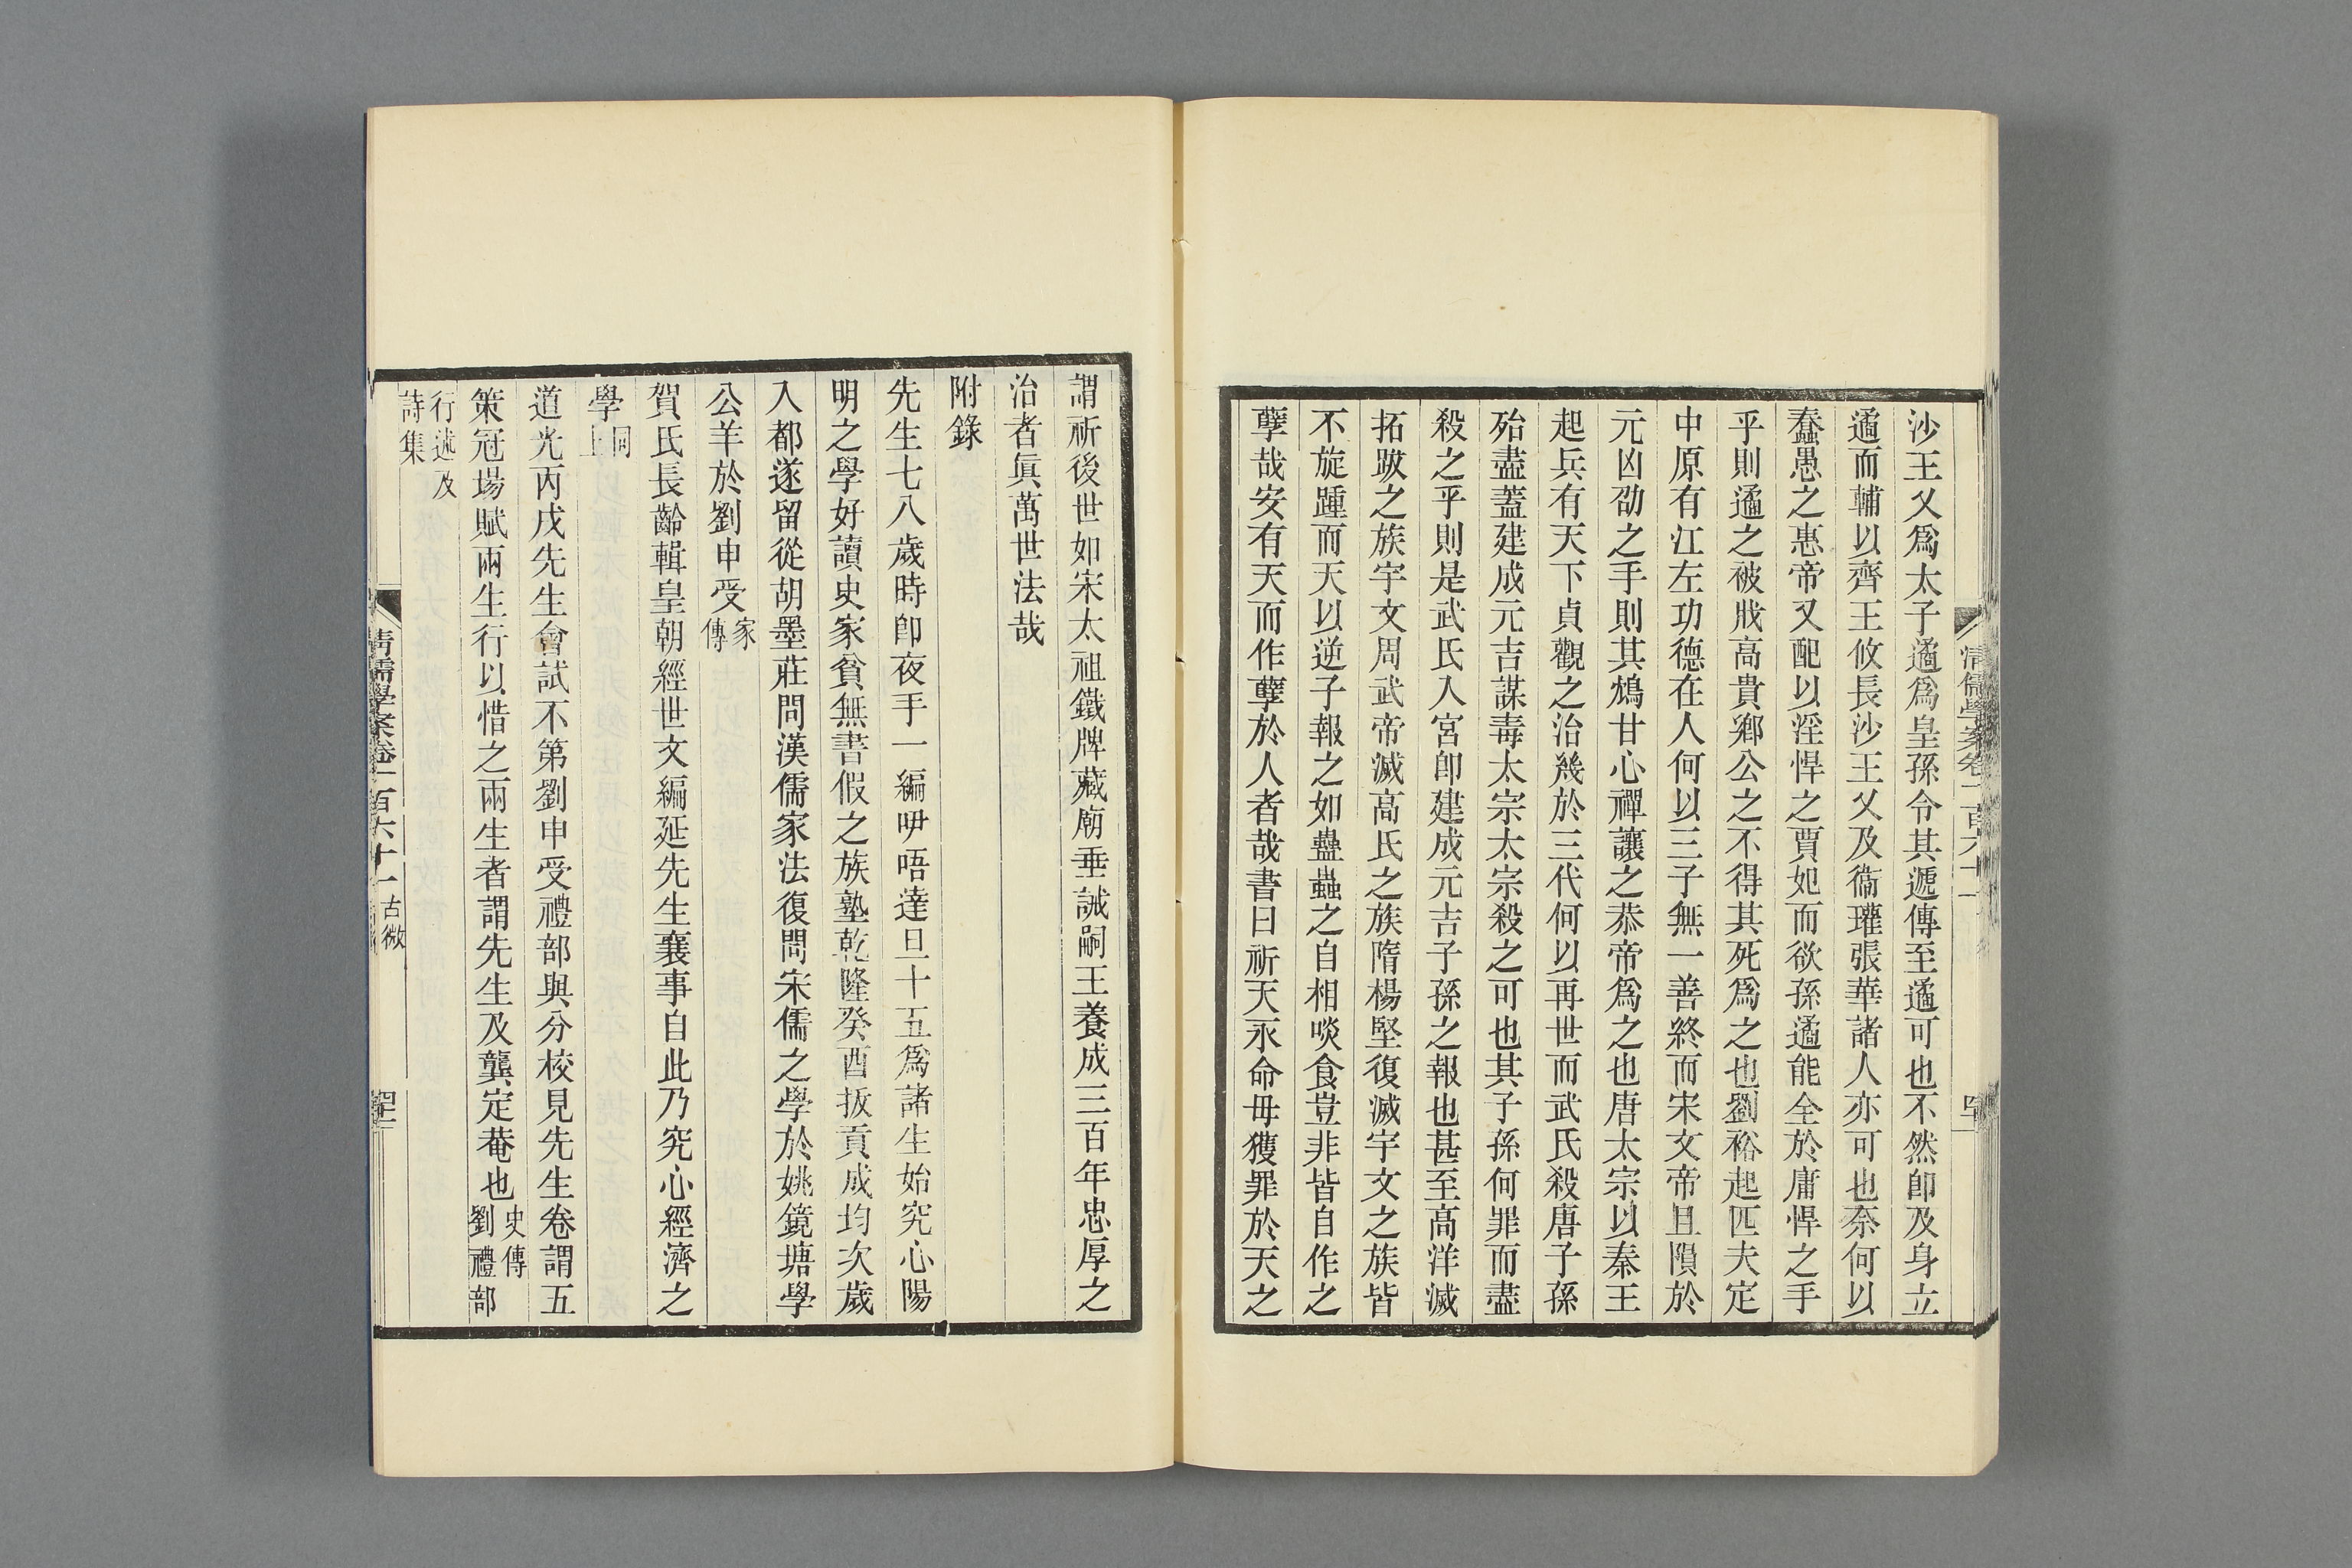 沙王乂爲太子遹爲皇孫令其遞傳至遹可也不然卽及身立
遹而輔以齊王攸長沙王乂及衞瓘張華諸人亦可也奈何以
蠢愚之惠帝又配以淫悍之賈妃而欲孫遹能全於庸悍之手
乎則遹之被戕高貴鄉公之不得其死爲之也劉裕起匹夫定
中原有江左功德在人何以三子無一善終而宋文帝且隕於
元凶劭之手則其鴆甘心禪讓之恭帝爲之也唐太宗以秦王
起兵有天下貞觀之治幾於三代何以再世而武氏殺唐子孫
殆盡蓋建成元吉謀毒太宗太宗殺之可也其子孫何罪而盡
殺之乎則是武氏入宮卽建成元吉子孫之報也甚至高洋滅
拓跋之族宇文周武帝滅高氏之族隋楊堅復滅宇文之族皆
不旋踵而天以逆子報之如蠱蟲之自相啖食豈非皆自作之
孽哉安有天而作孽於人者哉書曰祈天永命毋獲罪於天之
謂祈後世如宋太祖鐵牌藏廟垂誡嗣王養成三百年忠厚之
治者眞萬世法哉
附錄
先生七八歲時卽夜手一編咿唔達旦十五爲諸生始究心陽
明之學好讀史家貧無書假之族塾乾隆癸酉拔貢成均次歲
入都遂留從胡墨莊問漢儒家法復問宋儒之學於姚鏡塘學
公羊於劉申受家傳
賀氏長齡輯皇朝經世文編延先生襄事自此乃究心經濟之
學同上
道光丙戌先生會試不第劉申受禮部與分校見先生卷謂五
策冠場賦兩生行以惜之兩生者謂先生及龔定菴也史傳劉禮部
行述及詩集
清儒學案卷一百六十一 古微